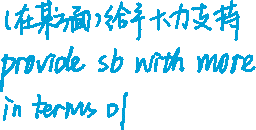 (在某方面)给予大力支持
provide sb with more
in terms of